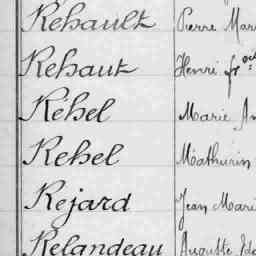 Rehault Pierre Mari
Rehaut Henri fr
Réhel Marie An
Rehel Mathurin
Rejard Jean Mari
Relandeau Auguste